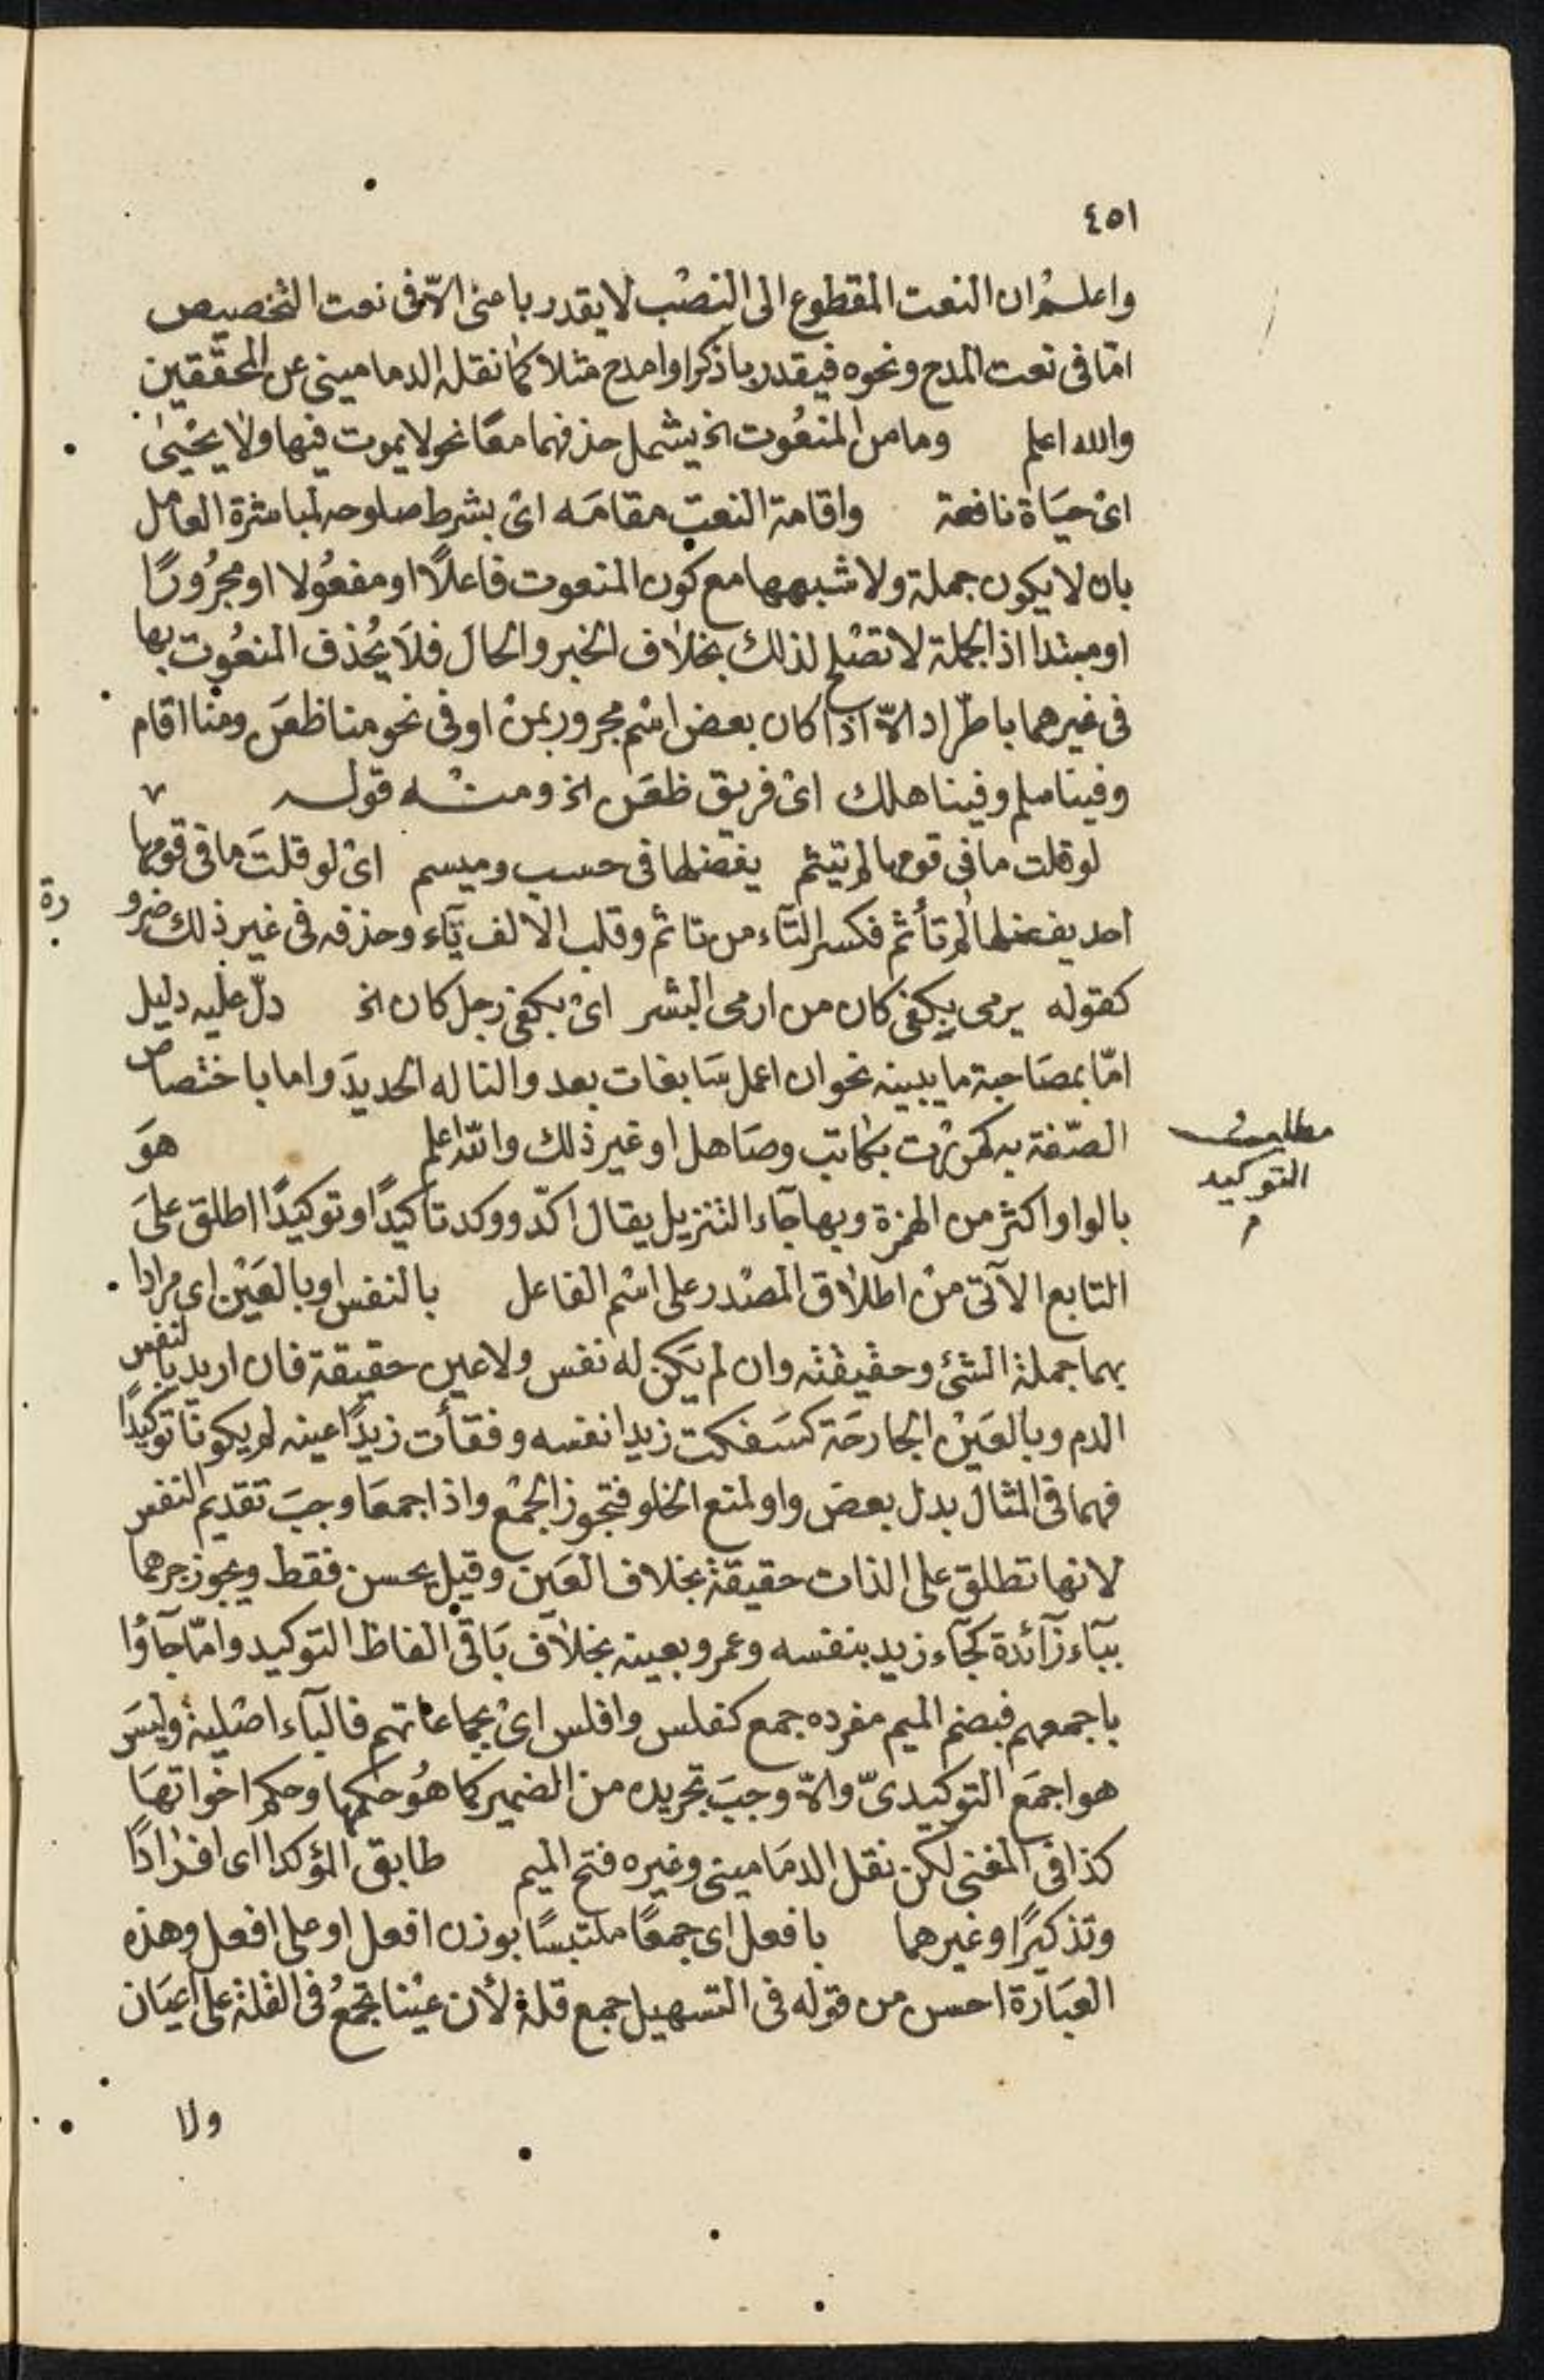 ٤٥١
واعلم ان النعت المقطوع الى النصْب لا يقدر باعنى الاّ فى نعت التخصيص
امّا فى نعت المدح ونحوه فيقدر باذكر او امدح مثلا كما نقله الدمامينى عن المحقّقين
والله اعلم وما من المنعُوت الخ يشمل حذفهما معًا نحو لا يموت فيها ولا يحْيىٰ
اىْ حيَاة نافعة واقامة النعت مقامَه اىْ بشرط صلوحه لمباشرة العامل
بان لا يكون جملة ولا شبهها مع كون المنعوت فاعلاً او مفعُولا او مجرُورًا
او مبتدا اذ الجملة لا تصْلح لذلك بخلاف الخبر والحالَ فلاَ يُحذف المنعُوت بها
فى غيرهما باطّراد الاّ اذا كان بعض اسْم مجرور بمنْ او فى نحو منا ظعَن ومنا اقام
وفينا سلم وفينا هلك اىْ فريق ظعَن الخ ومنه قوله
لو قلت ما فى قومها لم تيثم يفضلها فى حسب وميسم اىْ لو قلتَ ما فى قومها
احد يفضلها لم تأثم فكسر التآء من تاثم وقلب الالف يآء وحذفه فى غير ذلك ضرو
رة
كقوله يرمى بكفى كان من ارمى البشر اىْ بكفى رجل كان الخ دلّ عليْه دليل
امّا بمصَاحبة ما يبينه نحو ان اعمل سَابغات بعد والنا له الحديدَ واما باختصاص
الصّفة به كمررْت بكاتب وصَاهل او غير ذلك والله اعلم هوَ
مطلب
التوكيد
م
بالواو اكثر من الهمزة وبها جآء التنزيل يقال اكّد ووكد تاكيدًا وتوكيدًا اطلق علىَ
التابع الآتى منْ اطلاق المصْدر على اسْم الفاعل بالنفس او بالعَيْن اى مرادا
بهما جملة الشئ وحقيقته وان لم يَكن له نفس ولا عين حقيقة فان اريد بالنفس
الدم وبالعَيْن الجارحَة كسَفكت زيدا نفسه وفقأت زيدًا عينه لم يكونا توكيدًا
فهما فى المثال بدل بعضَ واو لمنع الخلو فتجوز الجمْع واذا اجمعَا وجبَ تقديم النفس
لانها تطلق على الذات حقيقة بخلاف العَين وقيل يحسن فقط ويجوز جرهما
ببآء زآئدة كجآء زيد بنفسه وعمرو بعينه بخلاف بَاقى الفاظ التوكيد وامّا جآؤا
باجمعهم فبضم الميم مفرده جمع كفلس وافلس اىْ بجماعاتهم فالبآء اصْلية وليسَ
هو اجمَع التوكيدىّ والاّ وجبَ تجريده من الضمير كما هُو حكمها وحكم اخواتهَا
كذا فى المغنى لكن نقل الدمَامينى وغيره فتح الميم طابق المؤكدا اى افرَادًا
وتذكيرًا وغيرهما بافعل اى جمعًا ملتبسًا بوزن افعل او على افعل وهذه
العبَارة احسن من قوله فى التسهيل جمع قلة لأن عيْنا تجمعُ فى القلة على اَعيَان
ولا